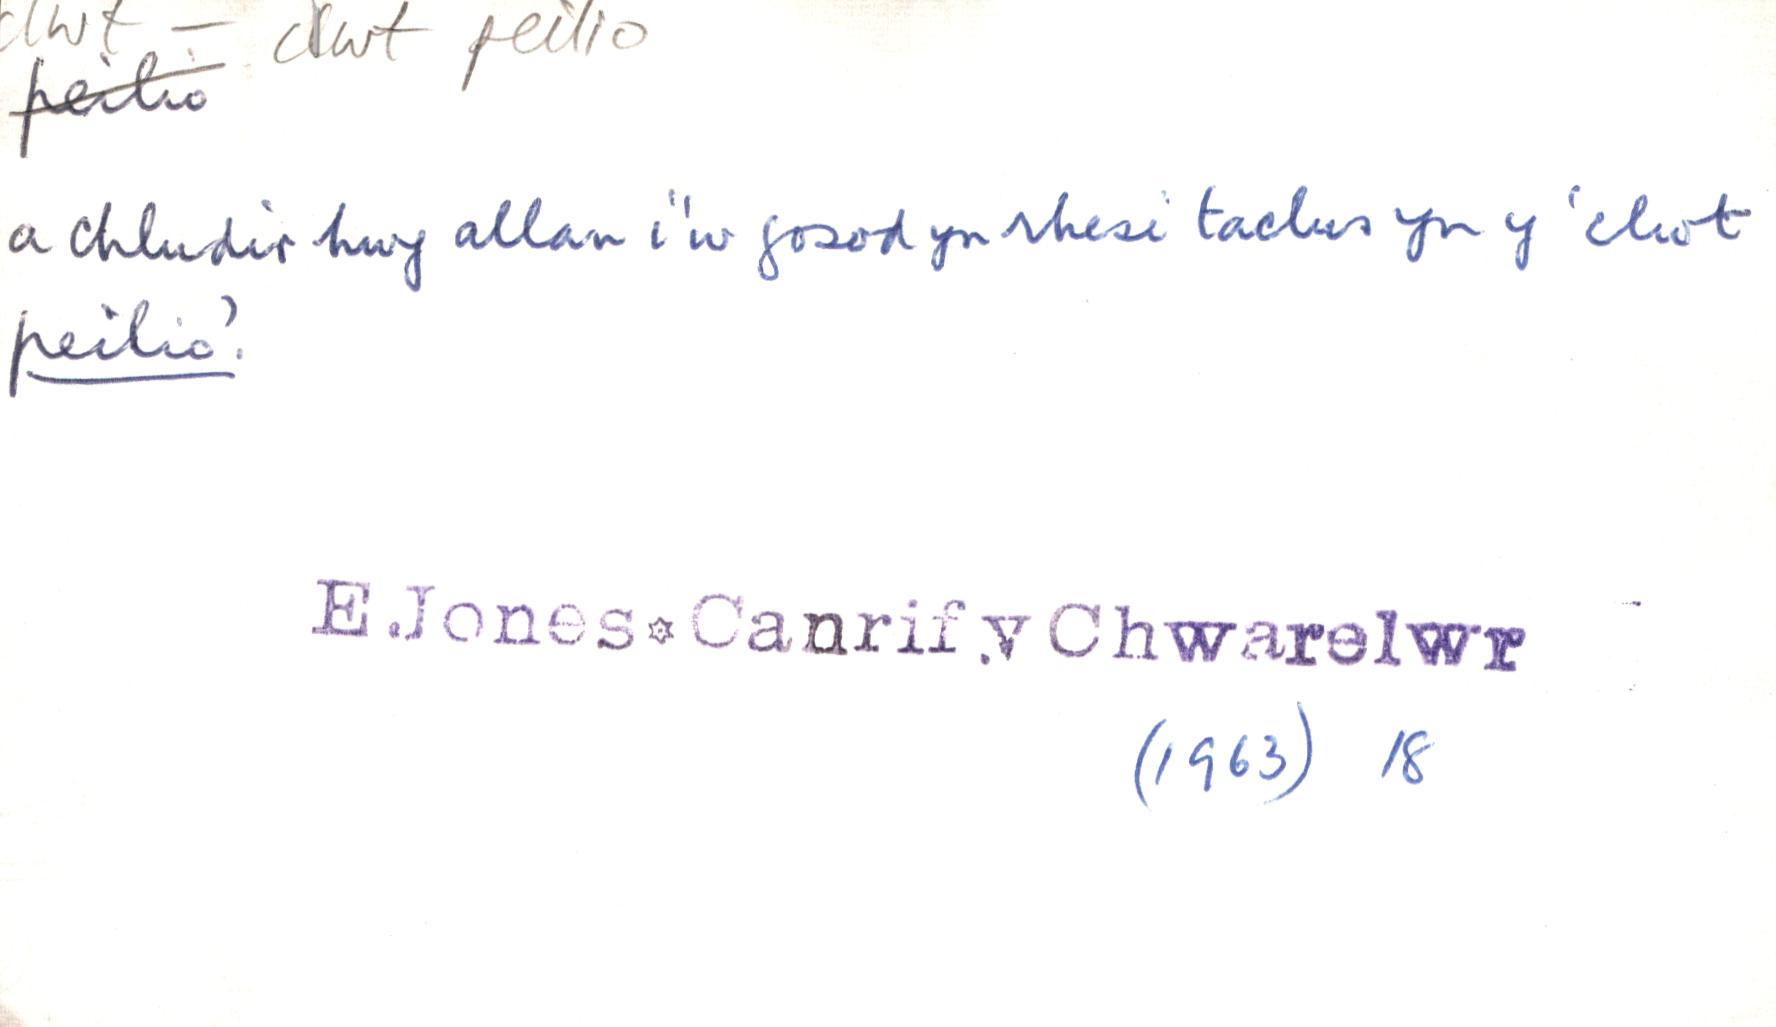 clwt – clwt peilio
peilio
a chludir hwy allan i'w gosod yn rhesi taclus yn y 'clwt
peilio'.
E Jones: Canrif y Chwarelwr
(1963) 18